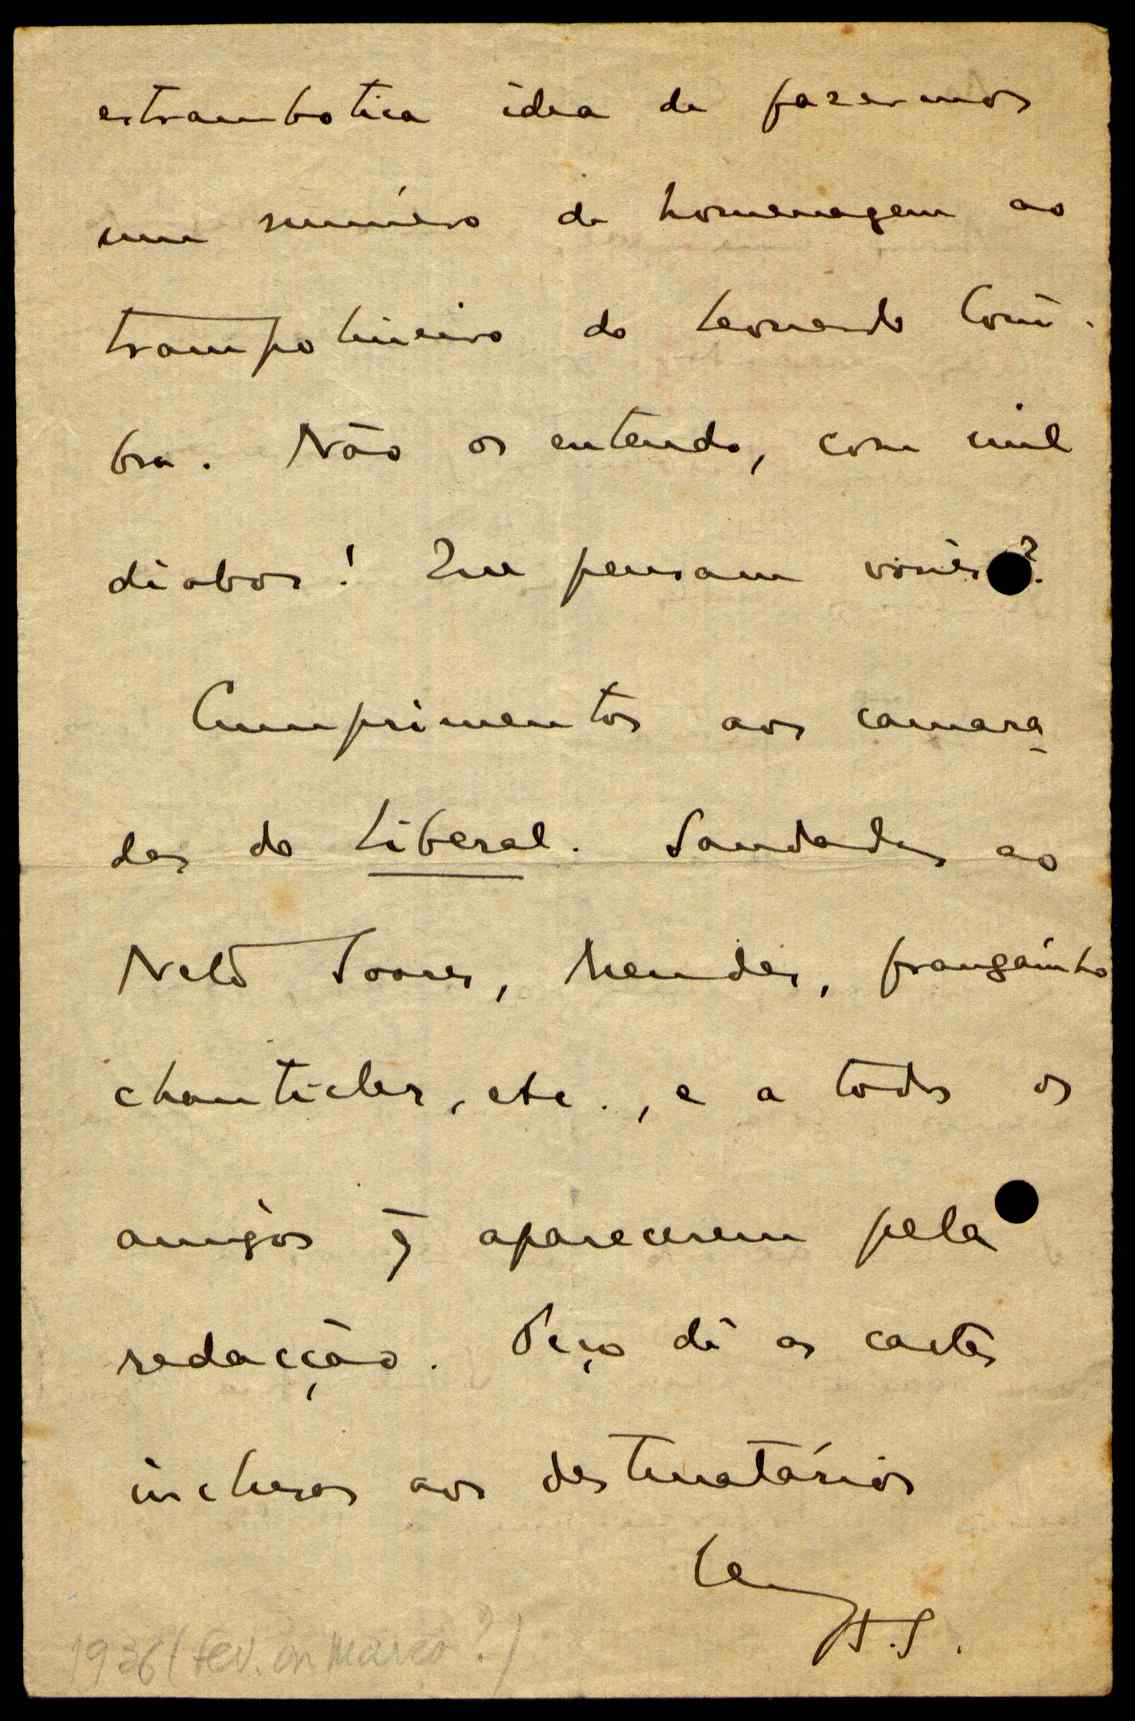 estrambotica idea de fazermos
um número de homenagem ao
trampolineiro do Leonardo Coim-
bra. Não os entendo, com mil
diabos! Que pensam vocês?
Cumprimentos aos camara-
das do Liberal. Saudades ao
Neto Soares, Mendes, frangainho
chanticler, etc., e a todos os
amigos q̄ aparecerem pela
redacção. Peço dê as cartas
inclusas aos destinatários
A. S.
1936 (fev. ou Março?)